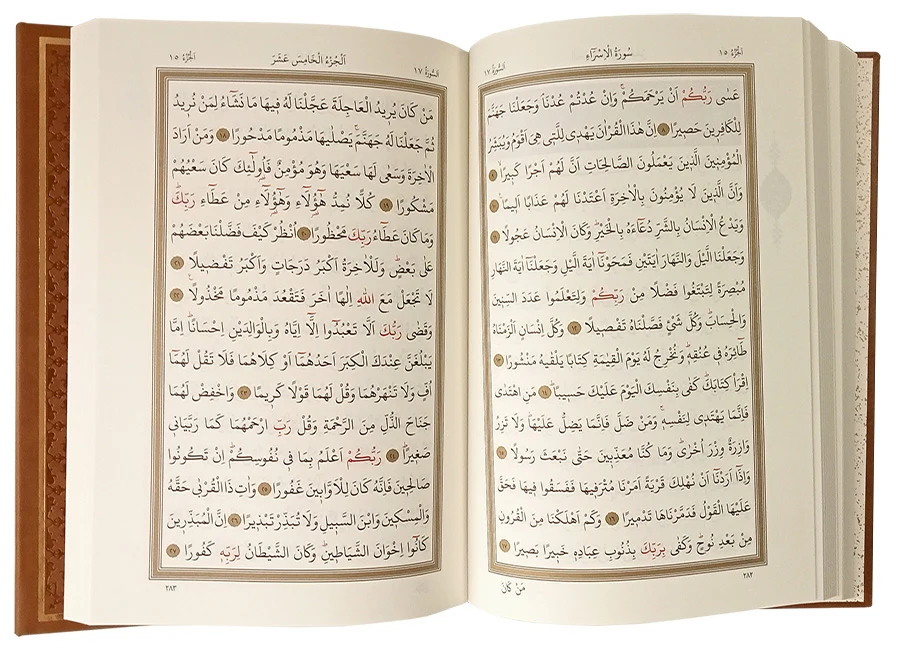 الجزء ١٥
سُورَةُ الْاِسْرَاءِ
السورة ١٧
عَسٰى رَبُّكُمْ اَنْ يَرْحَمَكُمْۚ وَاِنْ عُدْتُمْ عُدْنَاۢ وَجَعَلْنَا جَهَنَّمَ
لِلْكَافِر۪ينَ حَص۪يرًا ﴿٨﴾ اِنَّ هٰذَا الْقُرْاٰنَ يَهْد۪ي لِلَّت۪ي هِيَ اَقْوَمُ وَيُبَشِّرُ
الْمُؤْمِن۪ينَ الَّذ۪ينَ يَعْمَلُونَ الصَّالِحَاتِ اَنَّ لَهُمْ اَجْرًا كَب۪يرًا ﴿٩﴾
وَاَنَّ الَّذ۪ينَ لَا يُؤْمِنُونَ بِالْاٰخِرَةِ اَعْتَدْنَا لَهُمْ عَذَابًا اَل۪يمًا ﴿١٠﴾
وَيَدْعُ الْاِنْسَانُ بِالشَّرِّ دُعَٓاءَهُ بِالْخَيْرِۜ وَكَانَ الْاِنْسَانُ عَجُولًا ﴿١١﴾
وَجَعَلْنَا الَّيْلَ وَالنَّهَارَ اٰيَتَيْنِ فَمَحَوْنَٓا اٰيَةَ الَّيْلِ وَجَعَلْنَٓا اٰيَةَ النَّهَارِ
مُبْصِرَةً لِتَبْتَغُوا فَضْلًا مِنْ رَبِّكُمْ وَلِتَعْلَمُوا عَدَدَ السِّن۪ينَ
وَالْحِسَابَۜ وَكُلَّ شَيْءٍ فَصَّلْنَاهُ تَفْص۪يلًا ﴿١٢﴾ وَكُلَّ اِنْسَانٍ اَلْزَمْنَاهُ
طَٓائِرَهُ ف۪ي عُنُقِه۪ۜ وَنُخْرِجُ لَهُ يَوْمَ الْقِيٰمَةِ كِتَابًا يَلْقٰيهُ مَنْشُورًا ﴿١٣﴾
اِقْرَأْ كِتَابَكَۜ كَفٰى بِنَفْسِكَ الْيَوْمَ عَلَيْكَ حَس۪يبًاۜ ﴿١٤﴾ مَنِ اهْتَدٰى
فَاِنَّمَا يَهْتَد۪ي لِنَفْسِه۪ۚ وَمَنْ ضَلَّ فَاِنَّمَا يَضِلُّ عَلَيْهَاۜ وَلَا تَزِرُ
وَازِرَةٌ وِزْرَ اُخْرٰىۜ وَمَا كُنَّا مُعَذِّب۪ينَ حَتّٰى نَبْعَثَ رَسُولًا ﴿١٥﴾
وَاِذَٓا اَرَدْنَٓا اَنْ نُهْلِكَ قَرْيَةً اَمَرْنَا مُتْرَف۪يهَا فَفَسَقُوا ف۪يهَا فَحَقَّ
عَلَيْهَا الْقَوْلُ فَدَمَّرْنَاهَا تَدْم۪يرًا ﴿١٦﴾ وَكَمْ اَهْلَكْنَا مِنَ الْقُرُونِ
مِنْ بَعْدِ نُوحٍۜ وَكَفٰى بِرَبِّكَ بِذُنُوبِ عِبَادِه۪ خَب۪يرًا بَص۪يرًا ﴿١٧﴾
٢٨٢
مَنْ كَانَ
السورة ١٧
اَلْجُزْءُ الْخَامِسَ عَشَرَ
الجزء ١٥
مَنْ كَانَ يُر۪يدُ الْعَاجِلَةَ عَجَّلْنَا لَهُ ف۪يهَا مَا نَشَٓاءُ لِمَنْ نُر۪يدُ
ثُمَّ جَعَلْنَا لَهُ جَهَنَّمَۚ يَصْلٰيهَا مَذْمُومًا مَدْحُورًا ﴿١٨﴾ وَمَنْ اَرَادَ
الْاٰخِرَةَ وَسَعٰى لَهَا سَعْيَهَا وَهُوَ مُؤْمِنٌ فَاُو۬لٰٓئِكَ كَانَ سَعْيُهُمْ
مَشْكُورًا ﴿١٩﴾ كُلًّا نُمِدُّ هٰٓؤُ۬لَٓاءِ وَهٰٓؤُ۬لَٓاءِ مِنْ عَطَٓاءِ رَبِّكَۜ
وَمَا كَانَ عَطَٓاءُ رَبِّكَ مَحْظُورًا ﴿٢٠﴾ اُنْظُرْ كَيْفَ فَضَّلْنَا بَعْضَهُمْ
عَلٰى بَعْضٍۜ وَلَلْاٰخِرَةُ اَكْبَرُ دَرَجَاتٍ وَاَكْبَرُ تَفْض۪يلًا ﴿٢١﴾
لَا تَجْعَلْ مَعَ اللّٰهِ اِلٰهًا اٰخَرَ فَتَقْعُدَ مَذْمُومًا مَخْذُولًا۟ ﴿٢٢﴾
وَقَضٰى رَبُّكَ اَلَّا تَعْبُدُٓوا اِلَّٓا اِيَّاهُ وَبِالْوَالِدَيْنِ اِحْسَانًاۜ اِمَّا
يَبْلُغَنَّ عِنْدَكَ الْكِبَرَ اَحَدُهُمَٓا اَوْ كِلَاهُمَا فَلَا تَقُلْ لَهُمَٓا
اُفٍّ وَلَا تَنْهَرْهُمَا وَقُلْ لَهُمَا قَوْلًا كَر۪يمًا ﴿٢٣﴾ وَاخْفِضْ لَهُمَا
جَنَاحَ الذُّلِّ مِنَ الرَّحْمَةِ وَقُلْ رَبِّ ارْحَمْهُمَا كَمَا رَبَّيَان۪ي
صَغ۪يرًاۜ ﴿٢٤﴾ رَبُّكُمْ اَعْلَمُ بِمَا ف۪ي نُفُوسِكُمْۜ اِنْ تَكُونُوا
صَالِح۪ينَ فَاِنَّهُ كَانَ لِلْاَوَّاب۪ينَ غَفُورًا ﴿٢٥﴾ وَاٰتِ ذَا الْقُرْبٰى حَقَّهُ
وَالْمِسْك۪ينَ وَابْنَ السَّب۪يلِ وَلَا تُبَذِّرْ تَبْذ۪يرًا ﴿٢٦﴾ اِنَّ الْمُبَذِّر۪ينَ
كَانُٓوا اِخْوَانَ الشَّيَاط۪ينِۜ وَكَانَ الشَّيْطَانُ لِرَبِّه۪ كَفُورًا ﴿٢٧﴾
٢٨٣